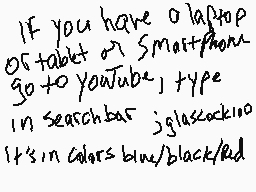 If you have a laptop
or tablet or Smartphone
go to YouTube, type
in searchbar jglascock100
it's in colors blue/black/Red